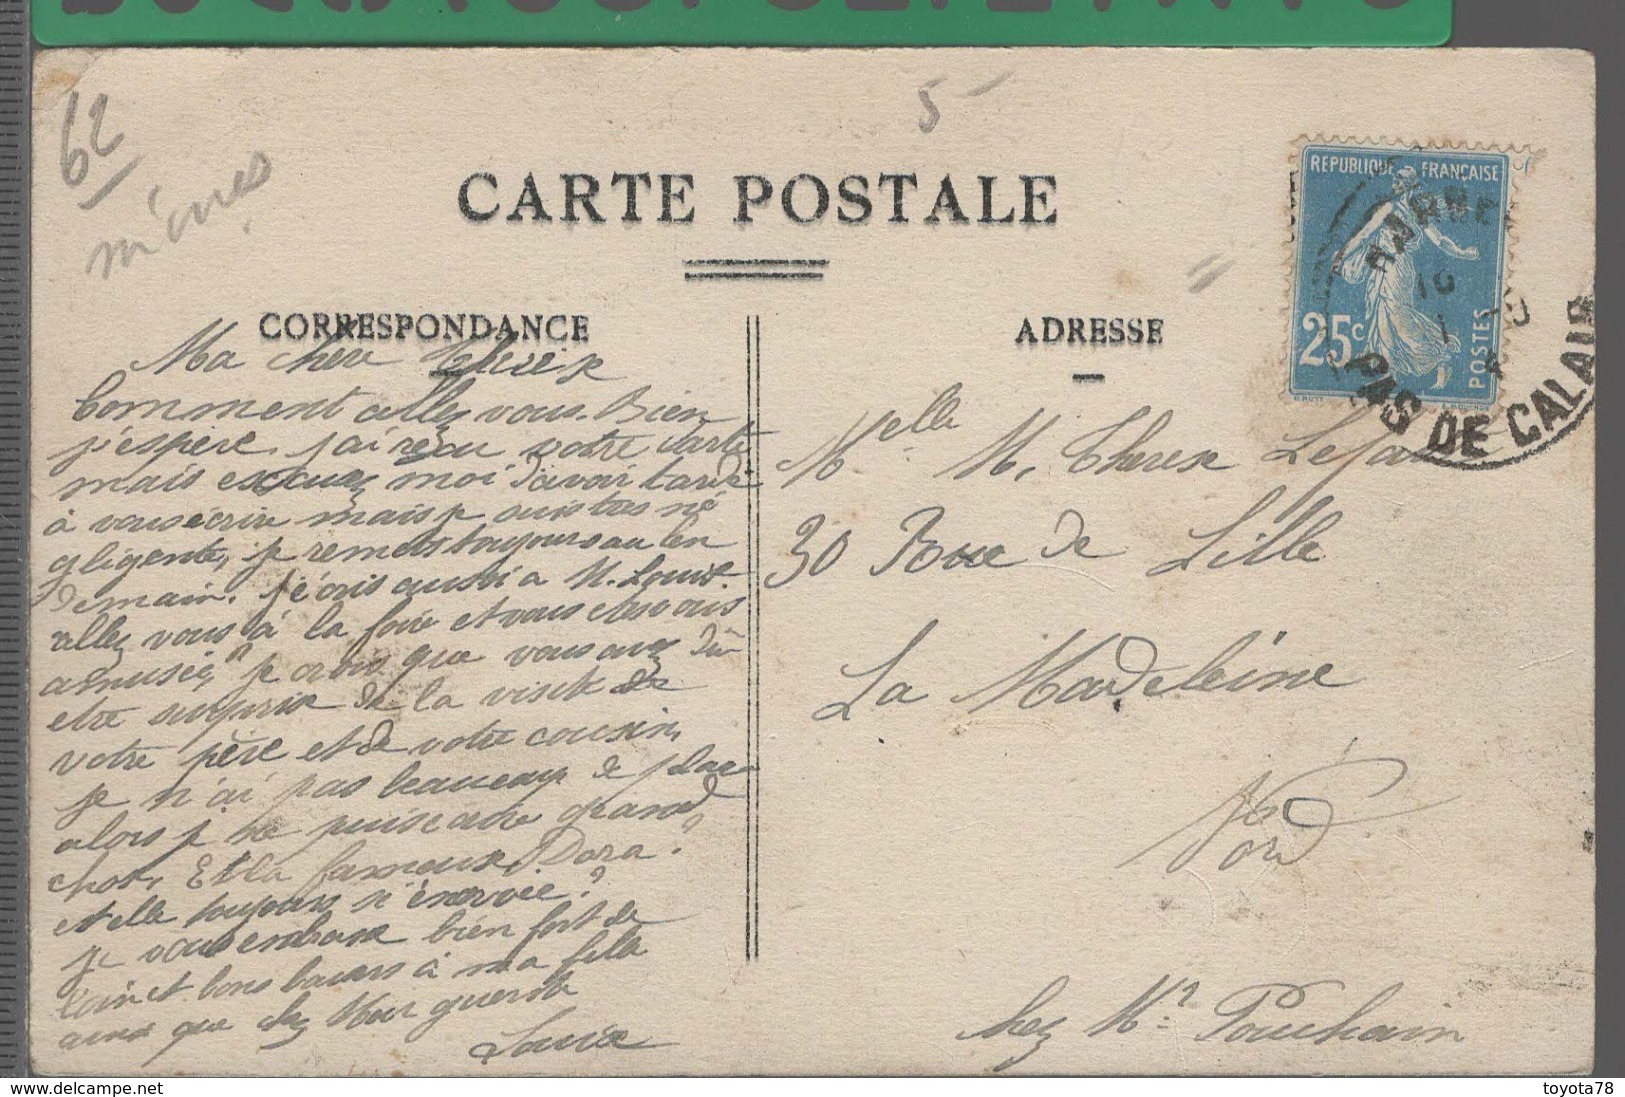 62
mères
5-
CARTE POSTALE
REPUBLIQUE FRANÇAISE
25c
POSTES
PAS DE CALAIS
CORRESPONDANCE
ADRESSE
Ma chere Therese
Comment allez vous. Bien
j'espère, j'ai reçu votre carte
mais excusez moi d'avoir tardé
à vous écrire mais je suis tres né
gligente, je remets toujours au len
demain. J'écris aussi a M. Louise
allez vous à la foire et vous etes vous
amusée, je crois que vous avez dû
etre surprise de la visite de
votre père et de votre cousin,
je n'ai pas beaucoup de place
alors je ne puis ecrire grand
chose, Et la fameuse Dora.
et elle toujours si énervée?
je vous embrasse bien fort de
loin et bons baisers à ma fille
ainsi que chez
Louise
Melle M. Therese
30 Rue de Lille
La Madeleine
Nord
chez Mr Pouchain
toyota78